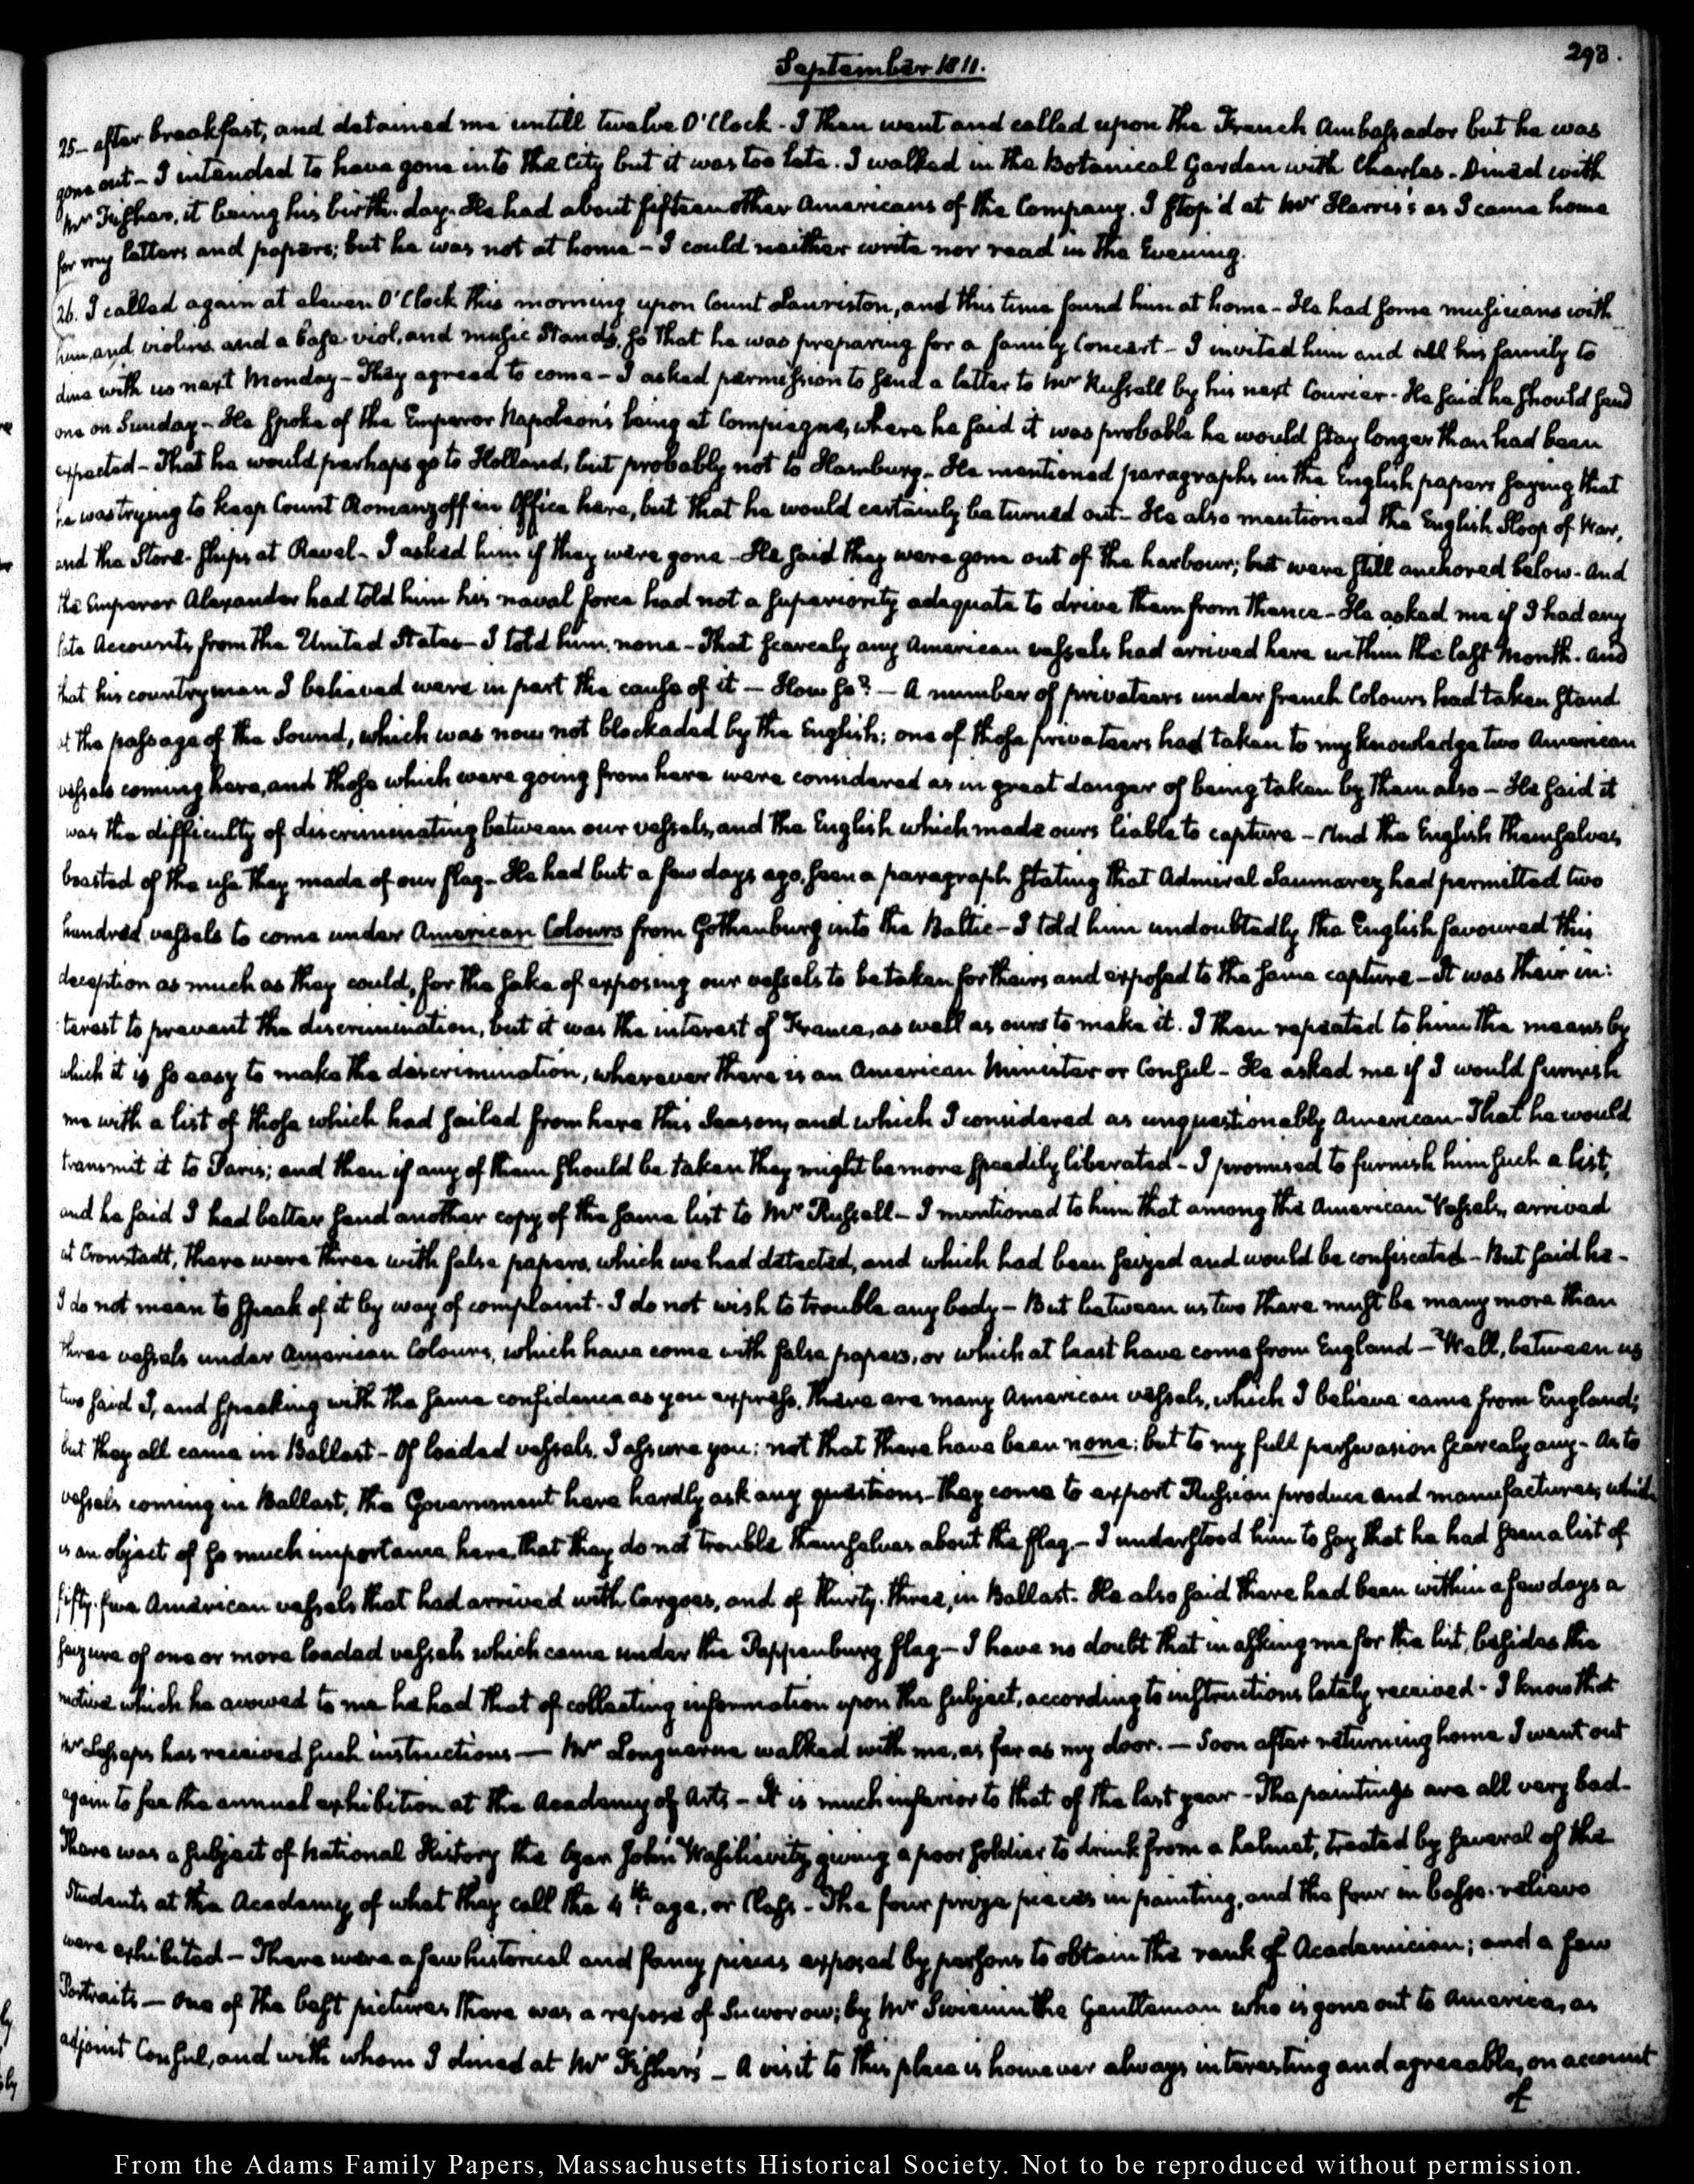 September 1811.
293.
25- after breakfast, and detained me untill twelve O'Clock - I then went and called upon the French Ambassador but he was
gone out - I intended to have gone into the City but it was too late. I walked in the Botanical Garden with Charles - Dined with
Mr Fisher, it being his birth-day. He had about fifteen other Americans of the Company. I stop'd at Mr Harris's as I came home
for my letters and papers; but he was not at home - I could neither write nor read in the Evening.
26. I called again at eleven O'Clock this morning upon Count Lauriston, and this time found him at home - He had some musicians with
him, and violins and a base-viol, and music stands, so that he was preparing for a family Concert - I invited him and all his family to
dine with us next Monday - They agreed to come - I asked permission to send a letter to Mr Russell by his next Courier - He said he should send
one on Sunday - He spoke of the Emperor Napoleon's being at Compiegne, where he said it was probable he would stay longer than had been
expected - That he would perhaps go to Holland, but probably not to Hamburg - He mentioned paragraphs in the English papers saying that
he was trying to keep Count Romanzoff in Office here, but that he would certainly be turned out - He also mentioned the English Sloop of War,
and the Store-ships at Reval - I asked him if they were gone - He said they were gone out of the harbour; but were still anchored below - And
the Emperor Alexander had told him his naval force had not a superiority adequate to drive them from thence - He asked me if I had any
late Accounts from the United States - I told him, none - That scarcely any American vessels had arrived here within the last Month - and
that his countrymen I believed were in part the cause of it - How so? - A number of privateers under french Colours had taken stand
at the passage of the Sound, which was now not blockaded by the English; one of those privateers had taken to my knowledge two American
vessels coming here, and those which were going from here were considered as in great danger of being taken by them also - He said it
was the difficulty of discriminating between our vessels, and the English which made ours liable to capture - And the English themselves
boasted of the use they made of our flag - He had but a few days ago, seen a paragraph stating that Admiral Saumarez had permitted two
hundred vessels to come under American Colours from Gothenburg into the Baltic - I told him undoubtedly the English favoured this
deception as much as they could, for the sake of exposing our vessels to be taken for theirs and exposed to the same capture - It was their in:
terest to prevent the discrimination, but it was the interest of France, as well as ours to make it. I then repeated to him the means by
which it is so easy to make the discrimination, wherever there is an American Minister or Consul - He asked me if I would furnish
me with a list of those which had sailed from here this Season, and which I considered as unquestionably American - That he would
transmit it to Paris; and then if any of them should be taken they might be more speedily liberated - I promised to furnish him such a list,
and he said I had better send another copy of the same list to Mr Russell - I mentioned to him that among the American Vessels, arrived
at Cronstadt, there were three with false papers, which we had detected, and which had been seized and would be confiscated - But said he -
I do not mean to speak of it by way of complaint - I do not wish to trouble any body - But between us two there must be many more than
three vessels under American Colours, which have come with false papers, or which at least have come from England - Well, between us
two said I, and speaking with the same confidence as you express, there are many American vessels, which I believe came from England;
but they all came in Ballast - Of loaded vessels, I assure you; not that there have been none; but to my full perswasion scarcely any - As to
vessels coming in Ballast, the Government here hardly ask any questions - They come to export Russian produce and manufactures, which
is an object of so much importance, here, that they do not trouble themselves about the flag - I understood him to say that he had seen a list of
fifty-five American vessels that had arrived with Cargoes, and of thirty-three, in Ballast - He also said there had been within a few days a
seizure of one or more loaded vessels which came under the Pappenburg flag - I have no doubt that in asking me for the list, besides the
motive which he avowed to me he had that of collecting information upon the subject, according to instructions lately received - I know that
Mr Lesseps has received such instructions — Mr Longuerue walked with me, as far as my door. - Soon after returning home I went out
again to see the annual exhibition at the Academy of Arts - It is much inferior to that of the last year - The paintings are all very bad -
There was a subject of National History the Czar John Wasilievitz, giving a poor soldier to drink from a helmet, treated by several of the
Students at the Academy, of what they call the 4th age, or Class - The four prize pieces in painting, and the four in basso-relievo
were exhibited - There were a few historical and fancy pieces exposed by persons to obtain the rank of Academician; and a few
Portraits — One of the best pictures there was a repose of Suworow; by Mr Swinin the Gentleman who is gone out to America, as
adjoint Consul, and with whom I dined at Mr Fisher's - A visit to this place is however always interesting and agreeable, on account
of
From the Adams Family Papers, Massachusetts Historical Society. Not to be reproduced without permission.